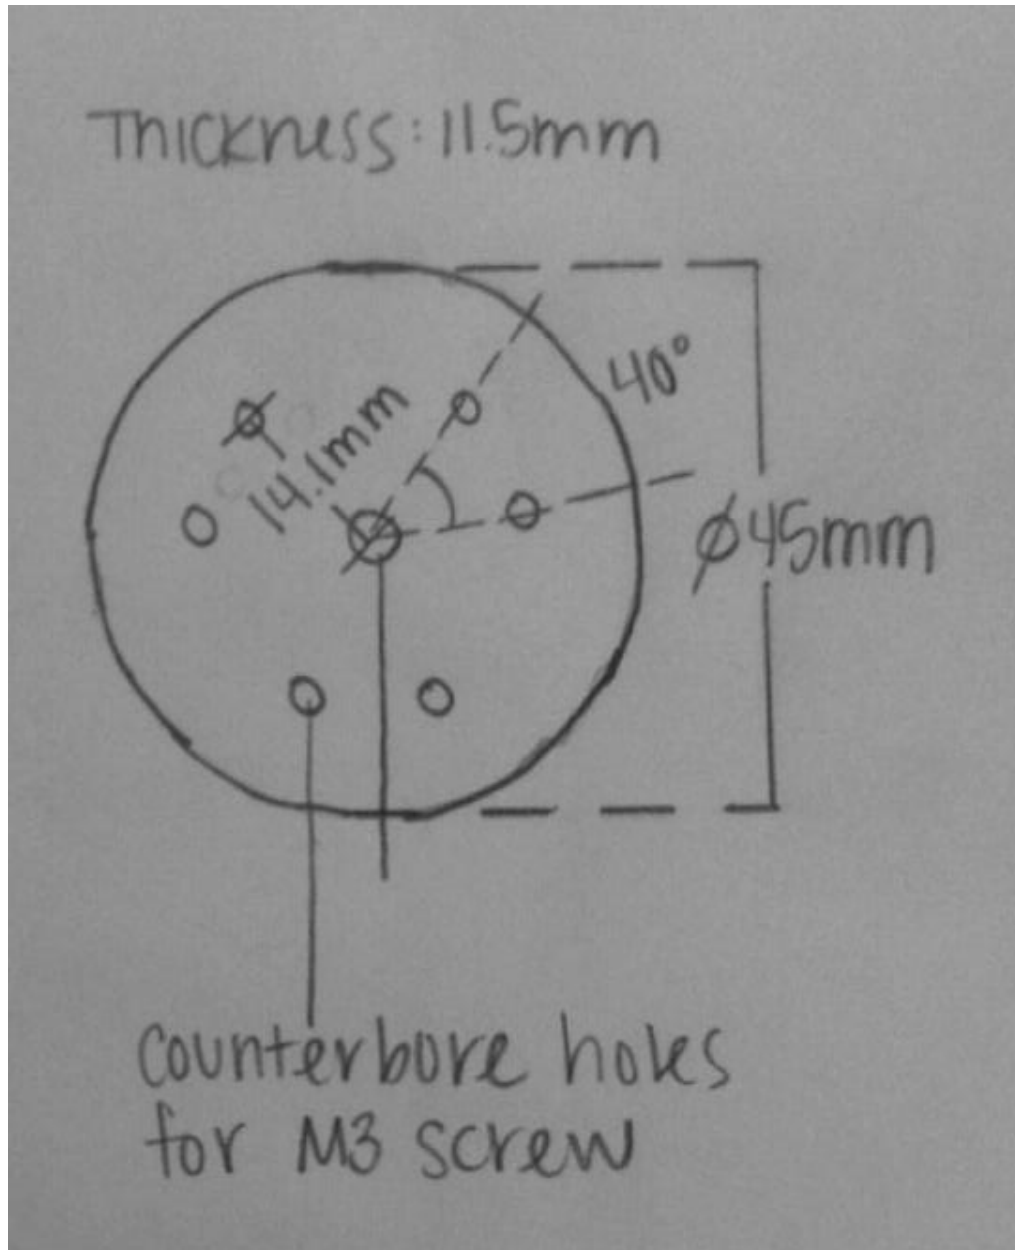 Thickness: 11.5mm
40°
14.1mm
Ø45mm
counterbore holes
for M3 screw